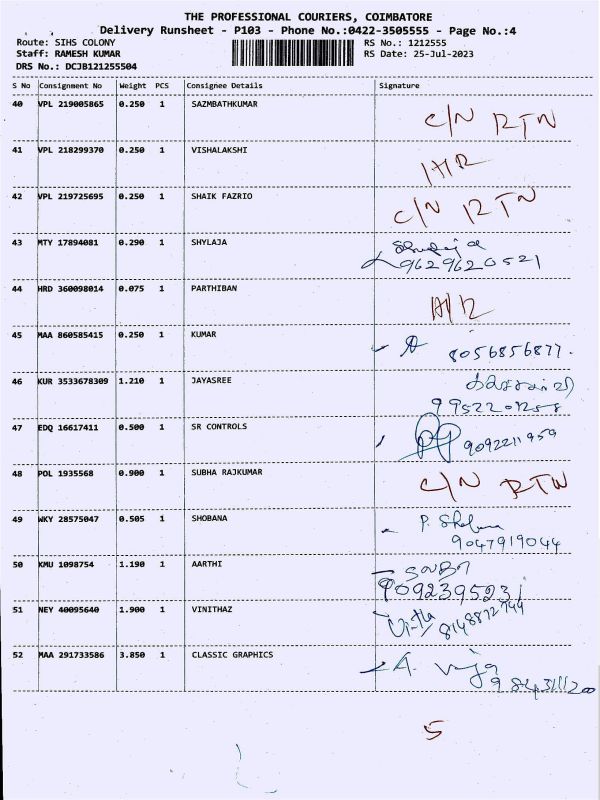 THE PROFESSIONAL COURIERS, COIMBATORE
Delivery Runsheet - P103 - Phone No.:0422-3505555 - Page No.:4
Route: SIHS COLONY RS No.: 1212555
Staff: RAMESH KUMAR RS Date: 25-Jul-2023
DRS No.: DCJB121255504
S No Consignment No Weight PCS Consignee Details Signature
40 VPL 219005865 0.250 1 SAZMBATHKUMAR C/N RTN
41 VPL 218299370 0.250 1 VISHALAKSHI
42 VPL 219725695 0.250 1 SHAIK FAZRIO C/N RTN
43 MTY 17894081 0.290 1 SHYLAJA 9629620521
44 HRD 360098014 0.075 1 PARTHIBAN
45 MAA 860585415 0.250 1 KUMAR 8056856877.
46 KUR 3533678309 1.210 1 JAYASREE
47 EDQ 16617411 0.500 1 SR CONTROLS 9092211959
48 POL 1935568 0.900 1 SUBHA RAJKUMAR C/N RTN
49 WKY 28575047 0.505 1 SHOBANA P. Shobana
9047919044
50 KMU 1098754 1.190 1 AARTHI
9092395231
51 NEY 40095640 1.900 1 VINITHAZ 8148872744
52 MAA 291733586 3.850 1 CLASSIC GRAPHICS
5